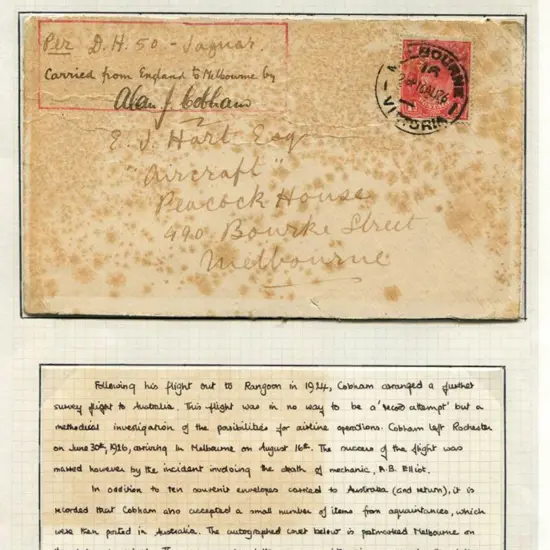 Per D.H. 50 - Jaguar.
Carried from England to Melbourne by
Alan J Cobham
MELBOURNE
16
16AU26
VICTORIA
E. J. Hart Esq
"Aircraft"
Peacock House
490 Bourke Street
Melbourne
Following his flight out to Rangoon in 1924, Cobham arranged a further
survey flight to Australia. This flight was in no way to be a 'record attempt' but a
methodical investigation of the possibilities for airline operations. Cobham left Rochester
on June 30th, 1926, arriving in Melbourne on August 16th. The success of the flight was
marred however by the incident involving the death of mechanic, A.B. Elliot.
In addition to ten souvenir envelopes carried to Australia (and return), it is
recorded that Cobham also accepted a small number of items from aquaintances, which
were then posted in Australia. The autographed cover below is postmarked Melbourne on